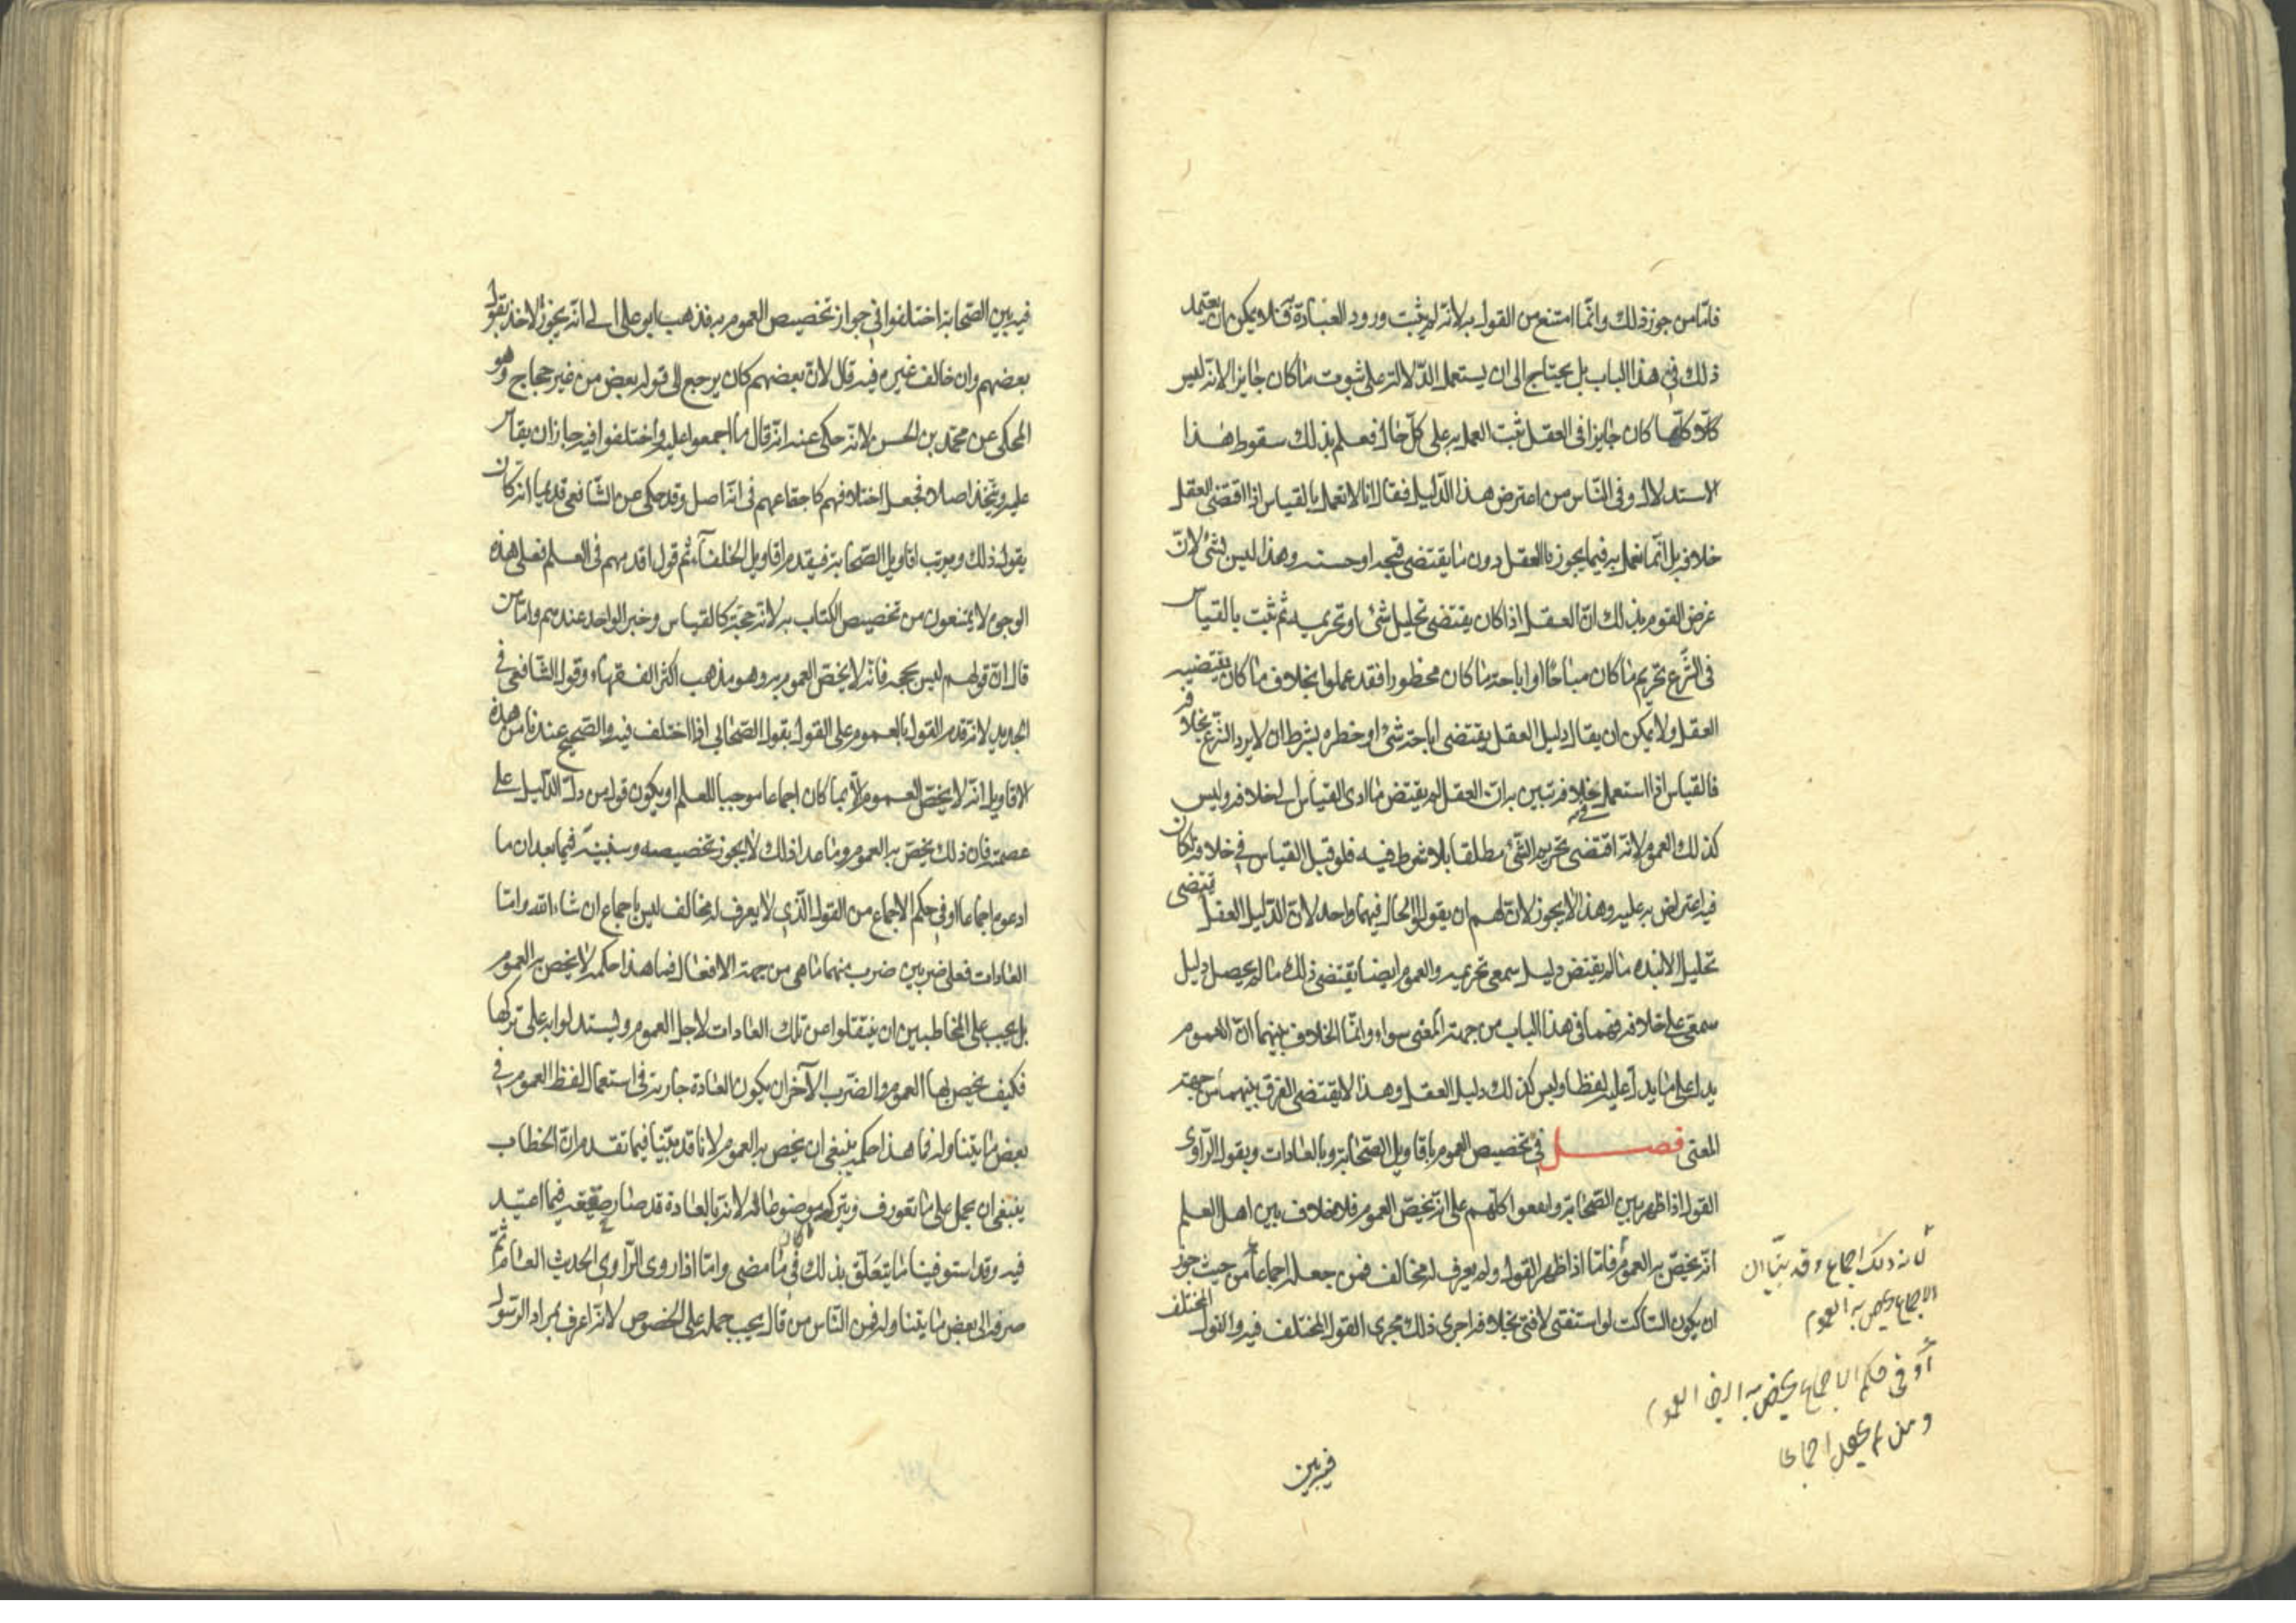 فامّا من جوز ذلك وانّما امتنع من القول به لانّه لم يثبت ورود العبادة به فلا يمكن ان يعتمد
ذلك في هذا الباب بل يحتاج الى ان يستعمل الدّلالة على ثبوت ما كان جايزا لانه ليس
كلّما كان جايزا في العقل ثبت العمل به على كلّ حال فعلم بذلك سقوط هذا
الاستدلال وفي النّاس من اعترض هذا الدّليل فقال انا لا نعمل بالقياس اذا اقتضى العقل
خلافه بل انّما نعمل به فيما يجوز بالعقل دون ما يقتضى قبحه او حسنه وهذا ليس بشئ لانّ
غرض القوم بذلك انّ العقل اذا كان يقتضى تحليل شئ او تحريمه ثم ثبت بالقياس
في الشّرع تحريم ما كان مباحا او اباحة ما كان محظورا فقد عملوا بخلاف ما كان يقتضيه
العقل ولا يمكن ان يقال دليل العقل يقتضى اباحة شئ او حظره بشرط ان لا يرد الشّرع بخلافه
فالقياس اذا استعمل في خلافه تبين به انّ العقل لم يقتض ما ادى القياس الى خلافه وليس
كذلك العموم لانه اقتضى تحريم الشّئ مطلقا بلا شرط فيه فلو قبل القياس في خلافه لكان
فيه اعتراض به عليه وهذا لا يجوز لانّ لهم ان يقولوا الحال فيهما واحد لانّ الدّليل العقل يقتضى
تحليل الانبذه ما لم يقتض دليل سمعى تحريمه والعموم ايضا يقتضى ذلك ما لم يحصل دليل
سمعى على خلافه فهما في هذا الباب من جهة المعنى سواء وانّما الخلاف بينهما انّ العموم
يدلّ على ما يدلّ عليه لفظا وليس كذلك دليل العقل وهذا لا يقتضى الفرق بينهما من جهة
المعنى فصل في تخصيص العموم باقاويل الصّحابة وبالعادات وبقول الرّاوى
القول اذا ظهر بين الصّحابة واجمعوا كلّهم على انّه يخصّ العموم فلا خلاف بين اهل العلم
انّه يخصّ به العموم فامّا اذا ظهر القول ولم يعرف له مخالف فمن جعله اجماعا من حيث جوز
ان يكون السّاكت لو استفتى لافتى بخلافه اجرى ذلك مجرى القول المختلف فيه والقول المختلف
لانّ ذلك اجماع وقد بيّنا ان
الاجماع يخص به العموم
او في حكم الاجماع يخص به ايضا العموم
ومن لم يجعل اجماعا
فيه بين
فيه بين الصّحابة اختلفوا في جواز تخصيص العموم به فذهب ابو على الى انّه يجوز الاخذ بقول
بعضهم وان خالف غيره فيه قال لانّ بعضهم كان يرجع الى قول بعض من غير حجاج وهو
المحكى عن محمّد بن الحسن لانّه حكى عنه انّه قال ما اجمعوا عليه واختلفوا فيه جاز ان يقاس
عليه ويتّخذ اصلا فجعل اختلافهم كاجماعهم في انّه اصل وقد حكى عن الشّافعى قديما انّه كان
يقول ذلك ويرتب اقاويل الصّحابة فيقدم اقاويل الخلفآء ثم قول اقدمهم في العلم فعلى هذه
الوجوه لا يمتنعون من تخصيص الكتاب به لانّه حجّة كالقياس وخبر الواحد عندهم وامّا من
قال انّ قولهم ليس بحجه فانّه لا يخصّ العموم به وهو مذهب اكثر الفقهاء وقول الشّافعى في
الجديد لانه قدم القول بالعموم على القول بقول الصّحابى اذا اختلف فيه والصّحيح عندنا من هذه
الاقاويل انّه لا يخصّ العموم الّا بما كان اجماعا موجبا للعلم او يكون قول من دلّ الدّليل على
عصمته فان ذلك يخصّ به العموم وما عدا ذلك لا يجوز تخصيصه وسنبيّن فيما بعد ان ما
ادعوه اجماعا او في حكم الاجماع من القول الّذي لا يعرف له مخالف ليس باجماع ان شاء الله وامّا
العادات فعلى ضربين ضرب منهما ما هى من جهة الافعال فما هذا حكمه لا يخص به العموم
بل يجب على المخاطبين ان ينتقلوا عن تلك العادات لاجل العموم ويستدلوا به على تركها
فكيف يخصّ بها العموم والضّرب الآخر ان يكون العادة جارية في استعمال لفظ العموم في
بعض ما يتناوله فما هذا حكمه ينبغى ان يخص به العموم لانا قد بيّنّا فيما تقدم انّ الخطاب
ينبغى ان يحمل على ما تعورف ويترك ما وضع له لانّه بالعادة قد صار حقيقة فيما اعتيد
فيه وقد استوفينا ما يتعلّق بذلك في ما مضى وامّا اذا روى الرّاوى الحديث العام ثمّ
صرفه الى بعض ما يتناوله فمن النّاس من قال يجب حمله على الخصوص لانّه اعرف بمراد الرّسول